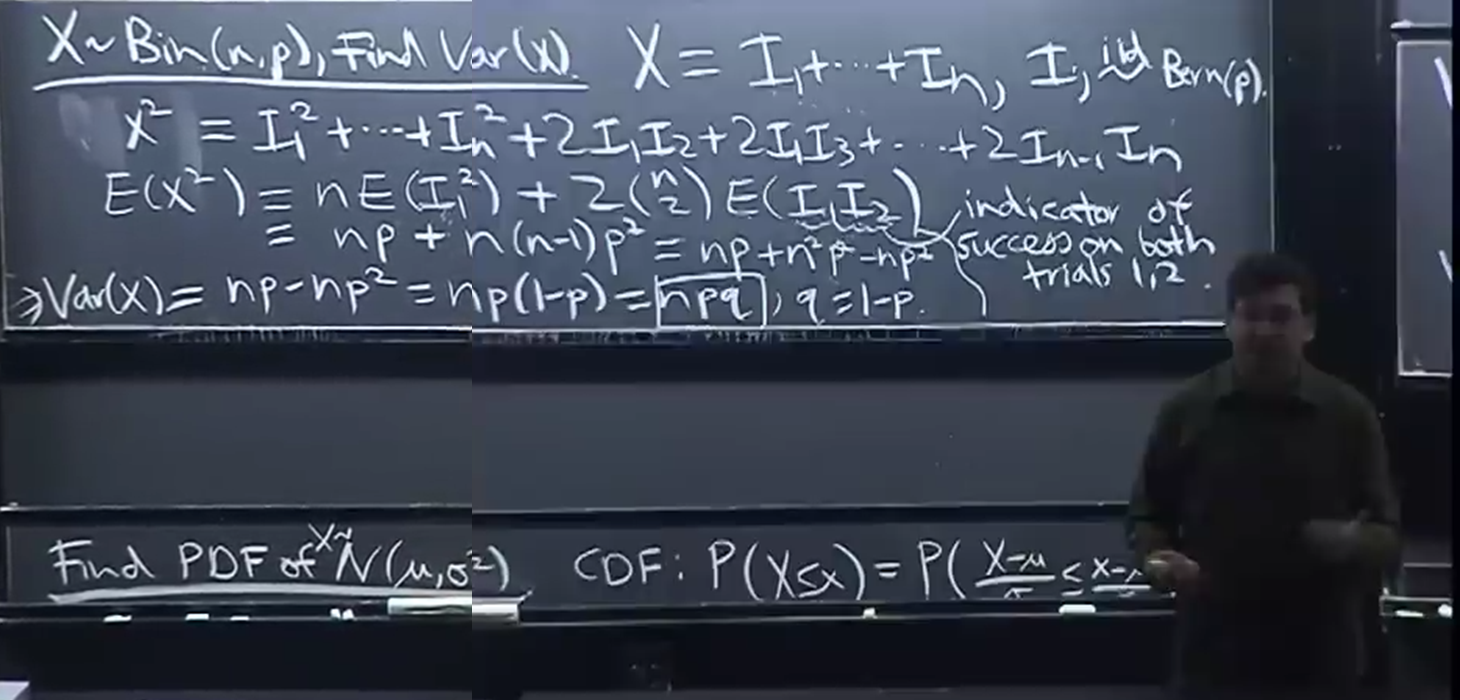 X ~ Bin(n,p), Find Var(X). X = I₁+⋯+Iₙ, Iⱼ iid~ Bern(p).
X² = I₁²+⋯+Iₙ²+2I₁I₂+2I₁I₃+⋯+2Iₙ₋₁Iₙ
E(X²) = nE(I₁²) + 2(n 2)E(I₁I₂) indicator of
= np + n(n-1)p² = np+n²p²-np² success on both
trials 1,2.
⇒Var(X) = np-np² = np(1-p) = npq, q=1-p.
Find PDF of X~N(μ,σ²) CDF: P(X≤x) = P(X-μ/σ ≤ x-